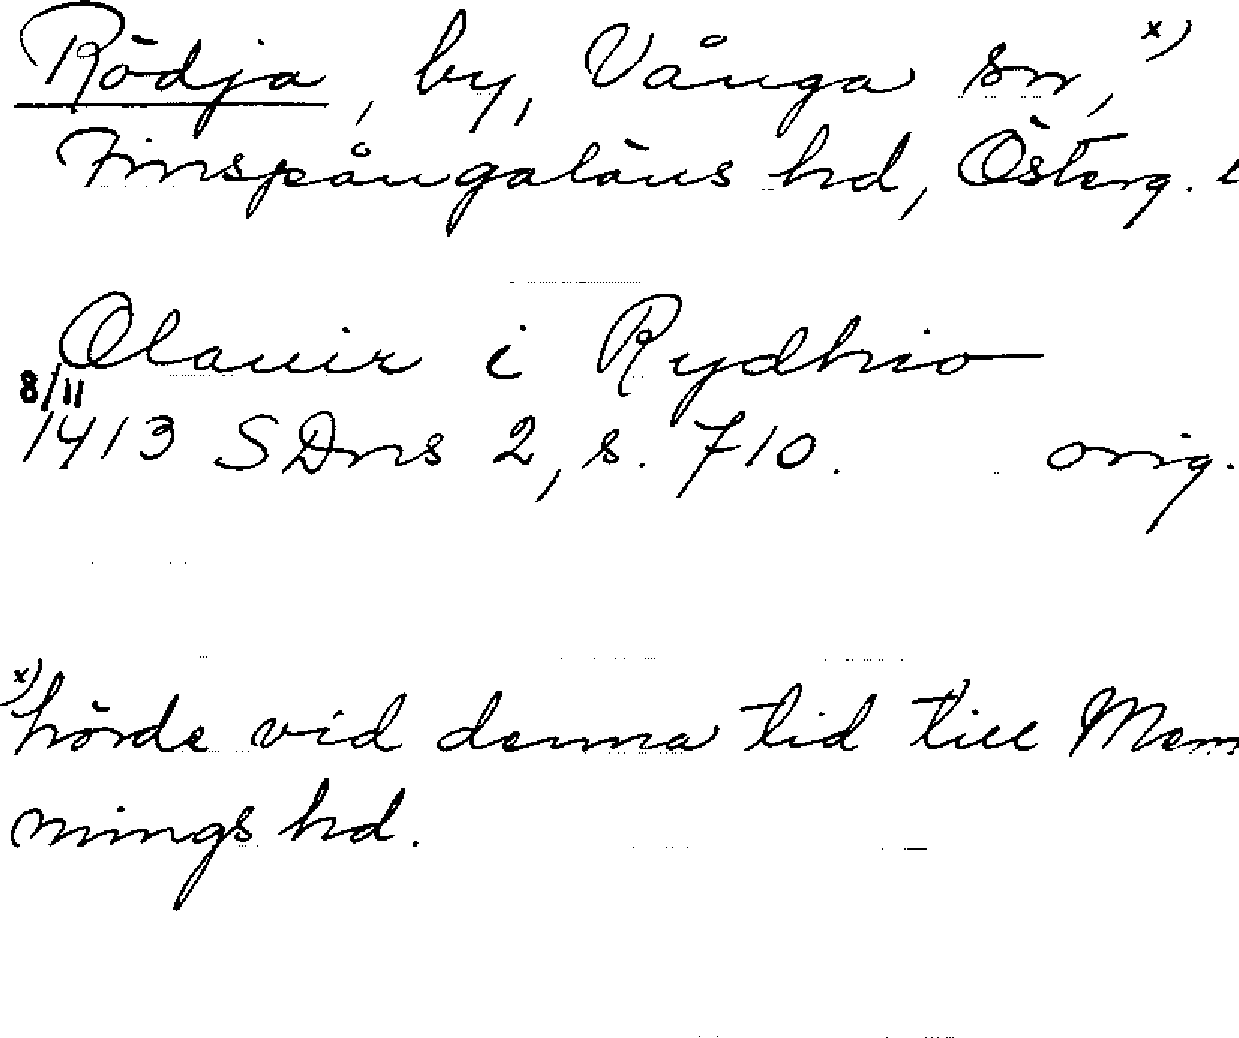 Rödja, by, Vånga sn, x)
Finspångaläns hd, Österg. l
Olauir i Rydhio
8/11
1413 SDns 2, s. 710. orig.
x) hörde vid denna tid till Mem
mings hd.